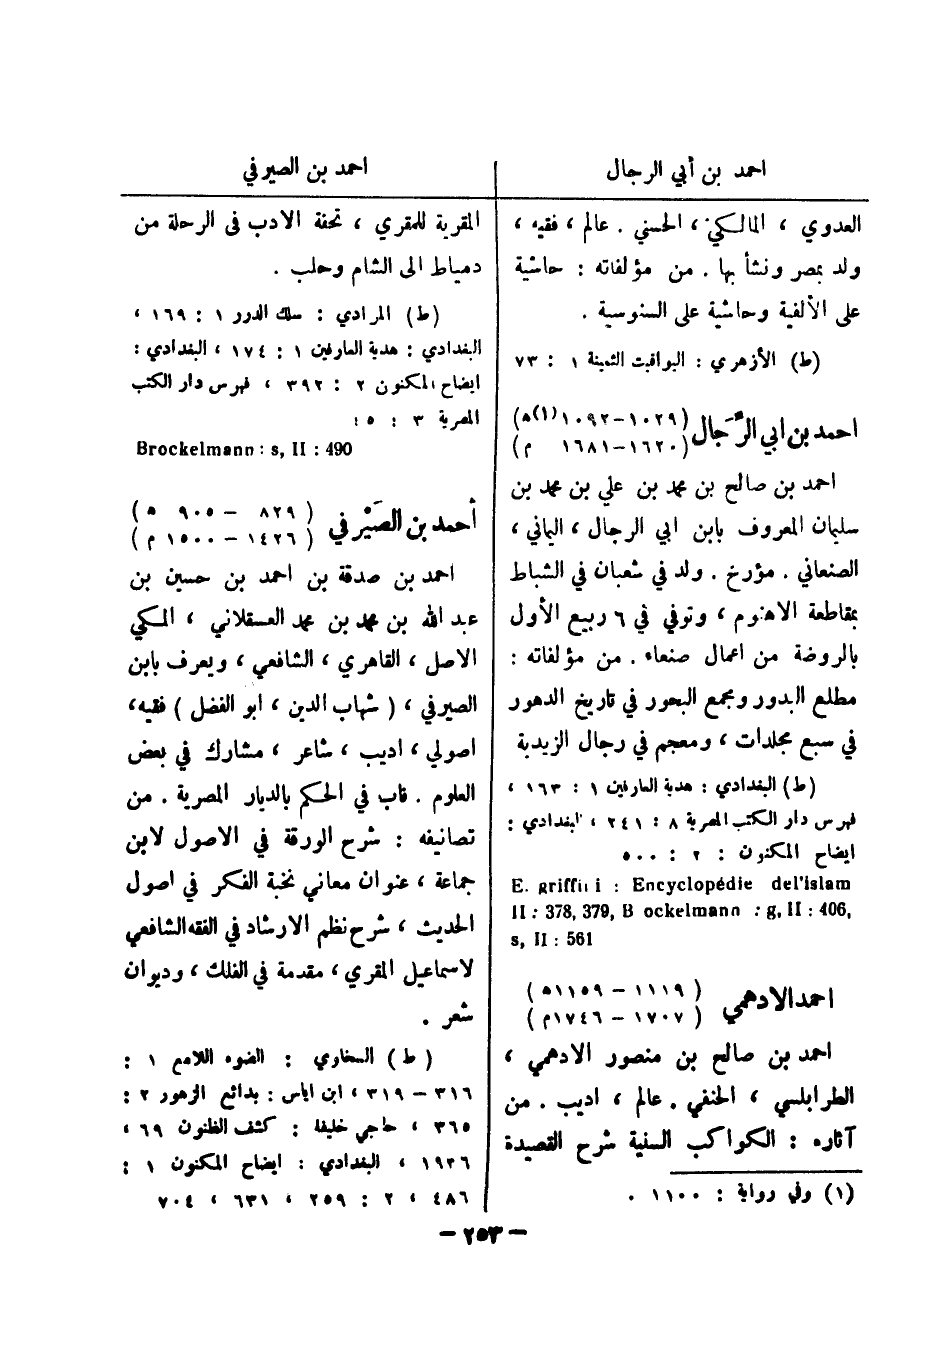 احمد بن أبي الرجال
العدوي ، المالكي ، الحسني . عالم ، فقيه ،
ولد بمصر ونشأ بها . من مؤلفاته : حاشية
على الألفية وحاشية على السنوسية .
(ط) الأزهري : اليواقيت الثمينة ١ : ٧٣
احمد بن ابي الرَّجال (١٠٢٩–١٠٩٢(١)ه)
(١٦٢٠–١٦٨١ م)
احمد بن صالح بن محمد بن علي بن محمد بن
سليمان المعروف بابن ابي الرجال ، اليماني ،
الصنعاني . مؤرخ . ولد في شعبان في الشباط
بمقاطعة الاهنوم ، وتوفي في ٦ ربيع الأول
بالروضة من اعمال صنعاء . من مؤلفاته :
مطلع البدور ومجمع البحور في تاريخ الدهور
في سبع مجلدات ، ومعجم في رجال الزيدية
(ط) البغدادي : هدية العارفين ١ : ١٦٣ ،
فهرس دار الكتب المصرية ٨ : ٢٤١ ، البغدادي :
ايضاح المكنون : ٢ : ٥٠٠
E. griffini : Encyclopédie del'islam
II : 378, 379, B ockelmann : g, II : 406,
s, II : 561
احمد الادهمي (١١١٩ – ١١٥٩ه)
(١٧٠٧ – ١٧٤٦م)
احمد بن صالح بن منصور الادهمي ،
الطرابلسي ، الحنفي . عالم ، اديب . من
آثاره : الكواكب السنية شرح القصيدة
(١) وفي رواية : ١١٠٠ .
احمد بن الصيرفي
المقرية للمقري ، تحفة الادب في الرحلة من
دمياط الى الشام وحلب .
(ط) المرادي : سلك الدرر ١ : ١٦٩ ،
البغدادي : هدية العارفين ١ : ١٧٤ ، البغدادي :
ايضاح المكنون ٢ : ٣٩٢ ، فهرس دار الكتب
المصرية ٣ : ٥
Brockelmann : s, II : 490
أحمد بن الصَيْرفي (٨٢٩ – ٩٠٥ ه)
(١٤٢٦ – ١٥٠٠ م)
احمد بن صدقة بن احمد بن حسين بن
عبد الله بن محمد بن محمد العسقلاني ، المكي
الاصل ، القاهري ، الشافعي ، ويعرف بابن
الصيرفي ، ( شهاب الدين ، ابو الفضل ) فقيه،
اصولي ، اديب ، شاعر ، مشارك في بعض
العلوم . ناب في الحكم بالديار المصرية . من
تصانيفه : شرح الورقة في الاصول لابن
جماعة ، عنوان معاني نخبة الفكر في اصول
الحديث ، شرح نظم الارشاد في الفقه الشافعي
لاسماعيل المقري ، مقدمة في الفلك ، وديوان
شعر .
(ط) السخاوي : الضوء اللامع ١ :
٣١٦ – ٣١٩ ، ابن اياس : بدائع الزهور ٢ :
٣٦٥ ، حاجي خليفة : كشف الظنون ٦٩ ،
١٩٣٦ ، البغدادي : ايضاح المكنون ١ :
٤٨٦ ، ٢ : ٢٥٩ ، ٦٣١ ، ٧٠٤
– ٢٥٣ –